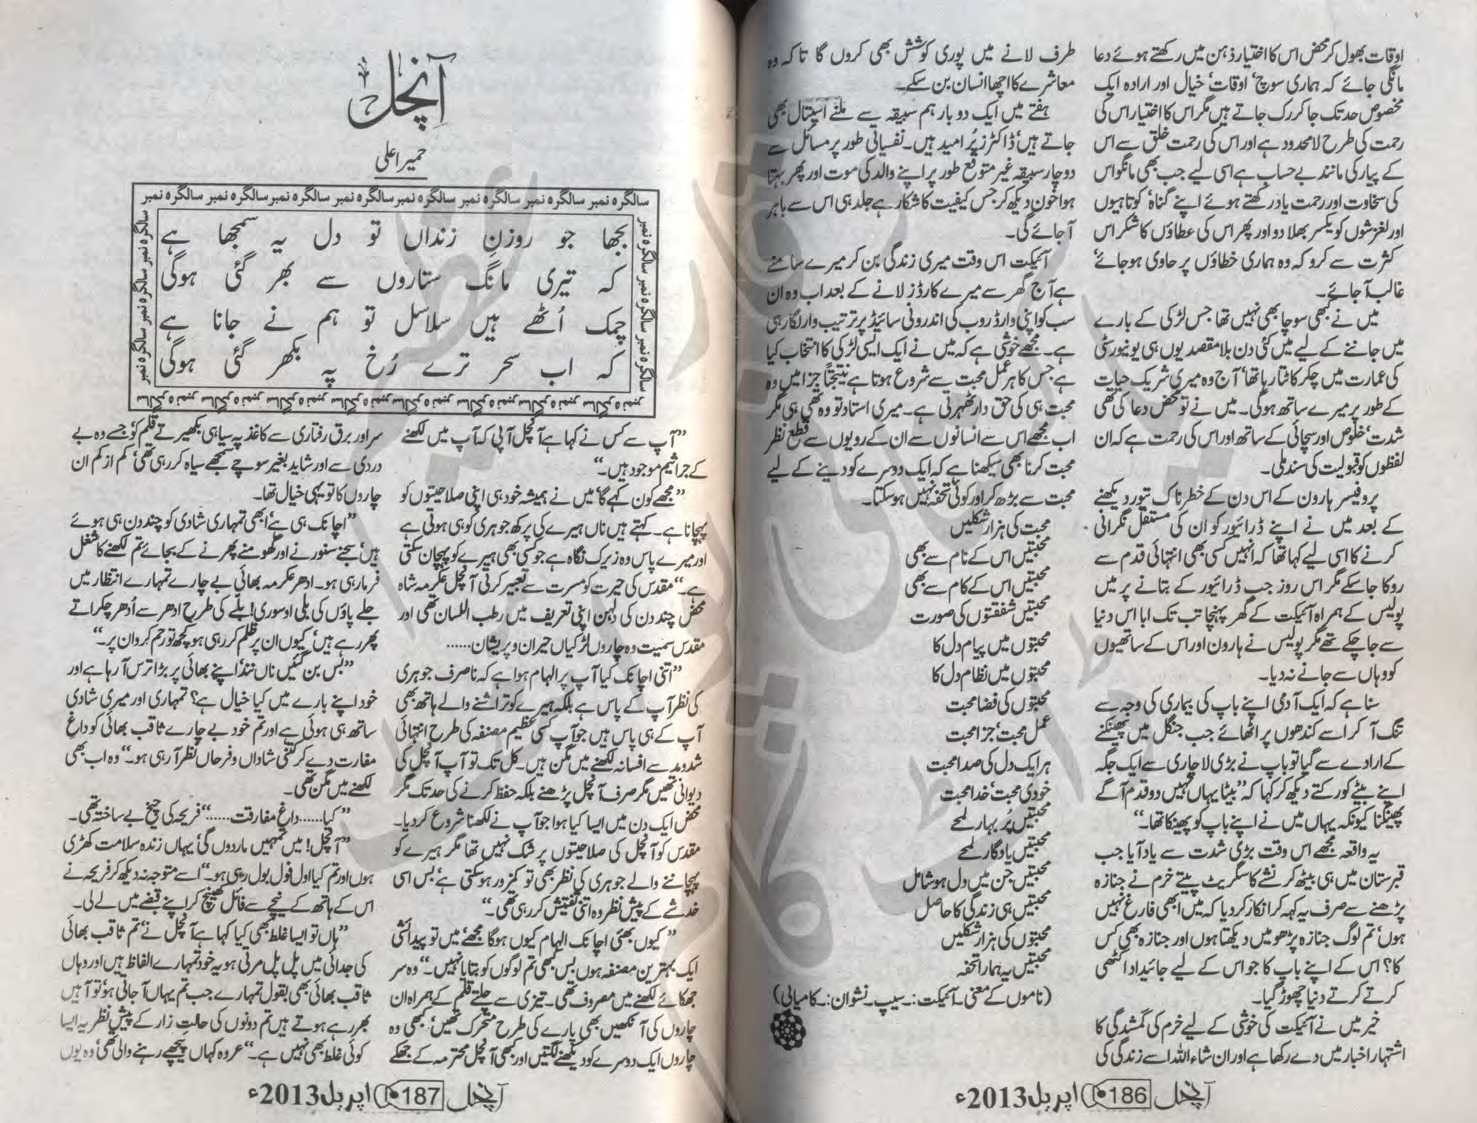 اوقات بھول کر محض اس کا اختیار ذہن میں رکھتے ہوئے دعا
مانگی جائے کہ ہماری سوچ، اوقات، خیال اور ارادہ ایک
مخصوص حد تک جا کر رک جاتے ہیں مگر اس کا اختیار اس کی
رحمت کی طرح لامحدود ہے اور اس کی رحمت خلق سے اس
کے پیار کی مانند بے حساب ہے اسی لیے جب بھی مانگو اس
کی سخاوت اور رحمت یاد رکھتے ہوئے اپنے گناہ، کوتاہیوں
اور لغزشوں کو یکسر بھلا دو اور پھر اس کی عطاؤں کا شکر اس
کثرت سے کرو کہ وہ ہماری خطاؤں پر حاوی ہوجائے،
غالب آجائے۔
میں نے کبھی سوچا بھی نہیں تھا جس لڑکی کے بارے
میں جاننے کے لیے میں کئی دن بلا مقصد یوں ہی یونیورسٹی
کی عمارت میں چکر کاٹتا رہا تھا، آج وہ میری شریک حیات
کے طور پر میرے ساتھ ہوگی۔ میں نے تو محض دعا کی تھی
شدت، خلوص اور سچائی کے ساتھ اور اس کی رحمت ہے کہ ان
لفظوں کو قبولیت کی سند ملی۔
پروفیسر ہارون کے اس دن کے خطرناک تیور دیکھنے
کے بعد میں نے اپنے ڈرائیور کو ان کی مستقل نگرانی
کرنے کا اسی لیے کہا تھا کہ انہیں کسی بھی انتہائی قدم سے
روکا جاسکے مگر اس روز جب ڈرائیور کے بتانے پر میں
پولیس کے ہمراہ آئیکت کے گھر پہنچا تب تک ابا اس دنیا
سے جاچکے تھے مگر پولیس نے ہارون اور اس کے ساتھیوں
کو وہاں سے جانے نہ دیا۔
سنا ہے کہ ایک آدمی اپنے باپ کی بیماری کی وجہ سے
تنگ آکر اسے کندھوں پر اٹھائے جب جنگل میں پھینکنے
کے ارادے سے گیا تو باپ نے بڑی لاچاری سے ایک جگہ
اپنے بیٹے کو رکتے دیکھ کر کہا کہ ”بیٹا یہاں نہیں دو قدم آگے
پھینکنا کیونکہ یہاں میں نے اپنے باپ کو پھینکا تھا۔“
یہ واقعہ مجھے اس وقت بڑی شدت سے یاد آیا جب
قبرستان میں ہی بیٹھ کر نشے کا سگریٹ پیتے خرم نے جنازہ
پڑھنے سے صرف یہ کہہ کر انکار کردیا کہ میں ابھی فارغ نہیں
ہوں، تم لوگ جنازہ پڑھو میں دیکھتا ہوں اور جنازہ بھی کس
کا؟ اس کے اپنے باپ کا جو اس کے لیے جائیداد اکٹھی
کرتے کرتے دنیا چھوڑ گیا۔
خیر میں نے آئیکت کی خوشی کے لیے خرم کی گمشدگی کا
اشتہار اخبار میں دے رکھا ہے اور ان شاء اللہ اسے زندگی کی
طرف لانے میں پوری کوشش بھی کروں گا تاکہ وہ
معاشرے کا اچھا انسان بن سکے۔
ہفتے میں ایک دو بار ہم سبیقہ سے ملنے اسپتال بھی
جاتے ہیں، ڈاکٹرز پُر امید ہیں۔ نفسیاتی طور پر مسائل سے
دوچار سبیقہ غیر متوقع طور پر اپنے والد کی موت اور پھر بہتا
ہوا خون دیکھ کر جس کیفیت کا شکار ہے جلد ہی اس سے باہر
آجائے گی۔
آئیکت اس وقت میری زندگی بن کر میرے سامنے
ہے آج گھر سے میرے کارڈز لانے کے بعد اب وہ ان
سب کو اپنی وارڈروب کی اندرونی سائیڈ پر ترتیب وار لگا رہی
ہے۔ مجھے خوشی ہے کہ میں نے ایک ایسی لڑکی کا انتخاب کیا
ہے جس کا ہر عمل محبت سے شروع ہوتا ہے نتیجتاً جزا میں وہ
محبت ہی کی حق دار ٹھہرتی ہے۔ میری استاد تو وہ تھی ہی مگر
اب مجھے اس سے انسانوں سے ان کے رویوں سے قطع نظر
محبت کرنا بھی سیکھنا ہے کہ ایک دوسرے کو دینے کے لیے
محبت سے بڑھ کر اور کوئی تحفہ نہیں ہوسکتا۔
محبت کی ہزار شکلیں
محبتیں اس کے نام سے بھی
محبتیں اس کے کام سے بھی
محبتیں شفقتوں کی صورت
محبتوں میں پیام دل کا
محبتوں میں نظام دل کا
محبتوں کی فضا محبت
عمل محبت، جزا محبت
ہر ایک دل کی صدا محبت
خودی محبت، خدا محبت
محبتیں پُر بہار لمحے
محبتیں یادگار لمحے
محبتیں جن میں دل ہو شامل
محبتیں ہی زندگی کا حاصل
محبتوں کی ہزار شکلیں
محبتیں یہ ہمارا تحفہ
(ناموں کے معنی۔ آئیکت:۔ سیپ، نشوان:۔ کامیابی)
آنچل 186 اپریل 2013ء
آنچل
حمیرا علی
سالگرہ نمبر سالگرہ نمبر سالگرہ نمبر سالگرہ نمبر سالگرہ نمبر سالگرہ نمبر سالگرہ نمبر سالگرہ نمبر
بجھا جو روزنِ زنداں تو دل یہ سمجھا ہے
کہ تیری مانگ ستاروں سے بھر گئی ہوگی
چمک اُٹھے ہیں سلاسل تو ہم نے جانا ہے
کہ اب سحر ترے رُخ پہ بکھر گئی ہوگی
”آپ سے کس نے کہا ہے آنچل آپی کہ آپ میں لکھنے
کے جراثیم موجود ہیں۔“
”مجھے کون کہے گا، میں نے ہمیشہ خود ہی اپنی صلاحیتوں کو
پہچانا ہے۔ کہتے ہیں ناں ہیرے کی پرکھ جوہری کو ہی ہوتی ہے
اور میرے پاس وہ زیرک نگاہ ہے جو کسی بھی ہیرے کو پہچان سکتی
ہے۔“ مقدس کی حیرت کو مسرت سے تعبیر کرتی آنچل عکرمہ شاہ
محض چند دن کی دلہن اپنی تعریف میں رطب اللسان تھی اور
مقدس سمیت وہ چاروں لڑکیاں حیران و پریشان......
”اتنی اچانک کیا آپ پر الہام ہوا ہے کہ نا صرف جوہری
کی نظر آپ کے پاس ہے بلکہ ہیرے کو تراشنے والے ہاتھ بھی
آپ کے ہی پاس ہیں جو آپ کسی عظیم مصنفہ کی طرح انتہائی
شدومد سے افسانہ لکھنے میں مگن ہیں۔ کل تک تو آپ آنچل کی
دیوانی تھیں مگر صرف آنچل پڑھنے بلکہ حفظ کرنے کی حد تک مگر
محض ایک دن میں ایسا کیا ہوا جو آپ نے لکھنا شروع کردیا۔
مقدس کو آنچل کی صلاحیتوں پر شک نہیں تھا مگر ہیرے کو
پہچاننے والے جوہری کی نظر بھی تو کمزور ہوسکتی ہے، بس اسی
خدشے کے پیش نظر وہ اتنی تفتیش کر رہی تھی۔“
”کیوں بھئی اچانک الہام کیوں ہوگا مجھے، میں تو پیدائشی
ایک بہترین مصنفہ ہوں بس کبھی تم لوگوں کو بتایا نہیں۔“ وہ سر
جھکائے لکھنے میں مصروف تھی۔ تیزی سے چلتے قلم کے ہمراہ ان
چاروں کی آنکھیں بھی پارے کی طرح متحرک تھیں، کبھی وہ
چاروں ایک دوسرے کو دیکھنے لگتیں اور کبھی آنچل محترمہ کے جھکے
سر اور برق رفتاری سے کاغذ پہ سیاہی بکھیرتے قلم کو، جسے وہ بے
دردی سے اور شاید بغیر سوچے سمجھے سیاہ کر رہی تھی، کم از کم ان
چاروں کا تو یہی خیال تھا۔
”اچانک ہی ہے، ابھی تمہاری شادی کو چند دن ہی ہوئے
ہیں، سجنے سنورنے اور گھومنے پھرنے کے بجائے تم لکھنے کا شغل
فرما رہی ہو۔ ادھر عکرمہ بھائی بے چارے تمہارے انتظار میں
جلے پاؤں کی بلی اوسوری! بلے کی طرح ادھر سے اُدھر چکراتے
پھر رہے ہیں، کیوں ان پر ظلم کر رہی ہو کچھ تو رحم کرو ان پر۔“
”بس بن گئیں ناں نند، اپنے بھائی پر بڑا ترس آرہا ہے اور
خود اپنے بارے میں کیا خیال ہے؟ تمہاری اور میری شادی
ساتھ ہی ہوئی ہے اور تم خود بے چارے ثاقب بھائی کو داغ
مفارقت دے کر کتنی شاداں و فرحاں نظر آرہی ہو۔“ وہ اب بھی
لکھنے میں مگن تھی۔
”کیا...... داغ مفارقت......“ فریحہ کی چیخ بے ساختہ تھی۔
”آنچل! میں تمہیں مار دوں گی، یہاں زندہ سلامت کھڑی
ہوں اور تم کیا اول فول بول رہی ہو۔“ اسے متوجہ نہ دیکھ کر فریحہ نے
اس کے ہاتھ کے نیچے سے فائل کھینچ کر اپنے قبضے میں لے لی۔
”ہاں تو ایسا غلط بھی کیا کہا ہے آنچل نے، تم ثاقب بھائی
کی جدائی میں پل پل مرتی ہو یہ خود تمہارے الفاظ ہیں اور وہاں
ثاقب بھائی بھی بقول تمہارے جب تم یہاں آجاتی ہو تو آہیں
بھر رہے ہوتے ہیں تم دونوں کی حالت زار کے پیش نظر یہ ایسا
کوئی غلط بھی نہیں ہے۔“ عروہ کہاں پیچھے رہنے والی تھی، وہ یوں
آنچل 187 اپریل 2013ء